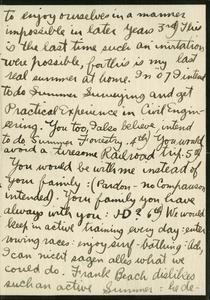 to enjoy ourselves in a manner
impossible in later years 3rd This
is the last time such an invitation
were possible, for this is my last
real summer at home. In 07 I intend
to do Summer Surveying and get
Practical Experience in Civil Engin-
eering. You too, I also believe, intend
to do Summer Forestry. 4th) You would
avoid a tiresome Railroad trip. 5th
You would be with me instead of
your family: (Pardon - no Comparison
intended). Your family you have
always with you: J-D? 6th We would
keep in active training every day: enter
rowing races: enjoy surf-bathing: Ach,
I can nicht sagen alles what we
could do. Frank Beach dislikes
such an active Summer: he de-